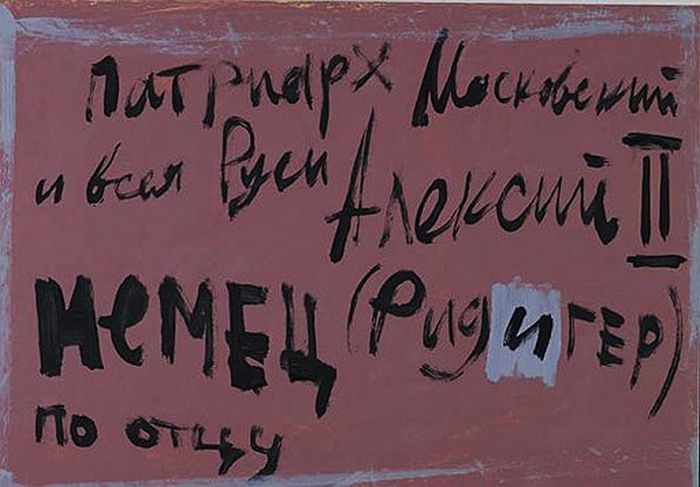 патриарх Московский
и всея Руси Алексий II
немец (Ридигер)
по отцу